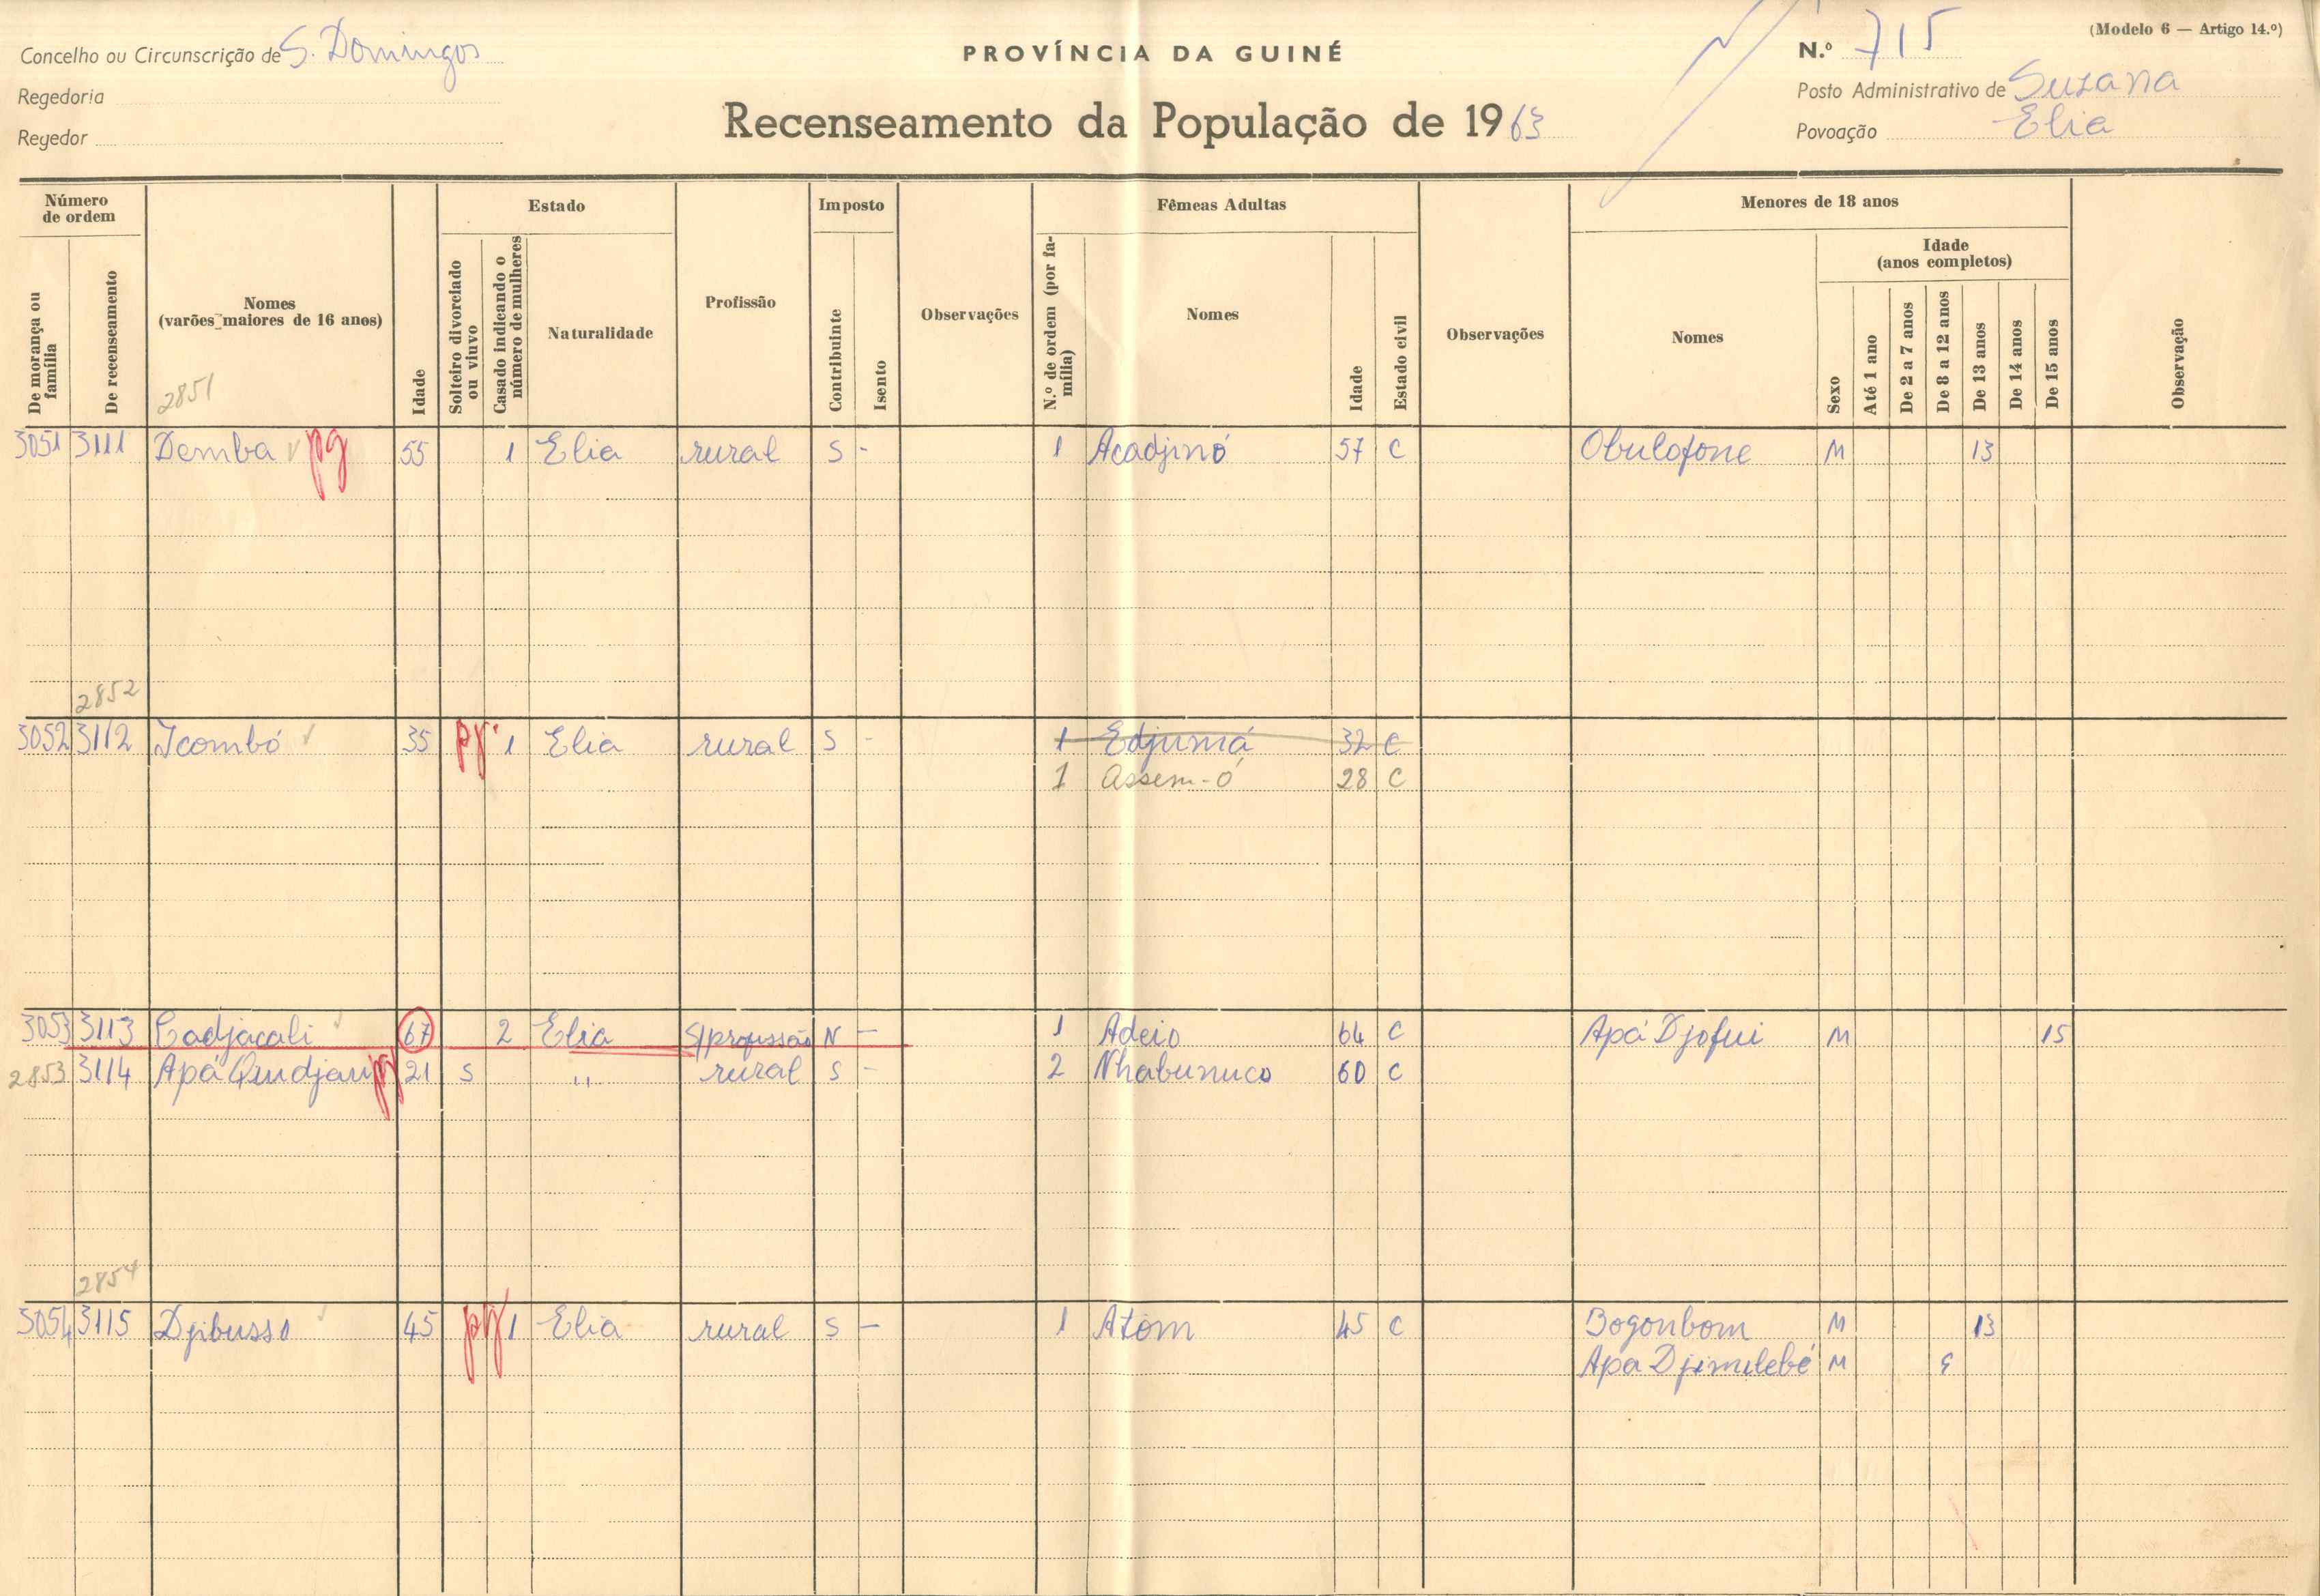 (Modelo 6 — Artigo 14.º)
Concelho ou Circunscrição de S. Domingos
PROVÍNCIA DA GUINÉ
N.º 715
Regedoria
Posto Administrativo de Suzana
Recenseamento da População de 1963
Regedor
Povoação Elia
Número de ordem
De morança ou família
De recenseamento
Nomes
(varões maiores de 16 anos)
2851
Idade
Estado
Solteiro divorciado ou viuvo
Casado indicando o número de mulheres
Naturalidade
Profissão
Imposto
Contribuinte
Isento
Observações
Fêmeas Adultas
N.º de ordem (por família)
Nomes
Idade
Estado civil
Observações
Menores de 18 anos
Nomes
Idade
(anos completos)
Sexo
Até 1 ano
De 2 a 7 anos
De 8 a 12 anos
De 13 anos
De 14 anos
De 15 anos
Observação
3051 3111 Demba pg 55 1 Elia rural S - 1 Acadjinó 57 C Obulofone M 13
2852
3052 3112 Icombó 35 pg 1 Elia rural S - 1 Edjumá 32 C
1 Assem-ó 28 C
3053 3113 Cadjacali 67 2 Elia S/profissão N — 1 Adeio 64 C Apá Djofui M 15
2853 3114 Apá Qundjau pg 21 S " rural S - 2 Nhabunuco 60 C
2854
3054 3115 Djibusso 45 pg 1 Elia rural S — 1 Atom 45 C Bogonbom M 13
Apa Djimulebé M 9